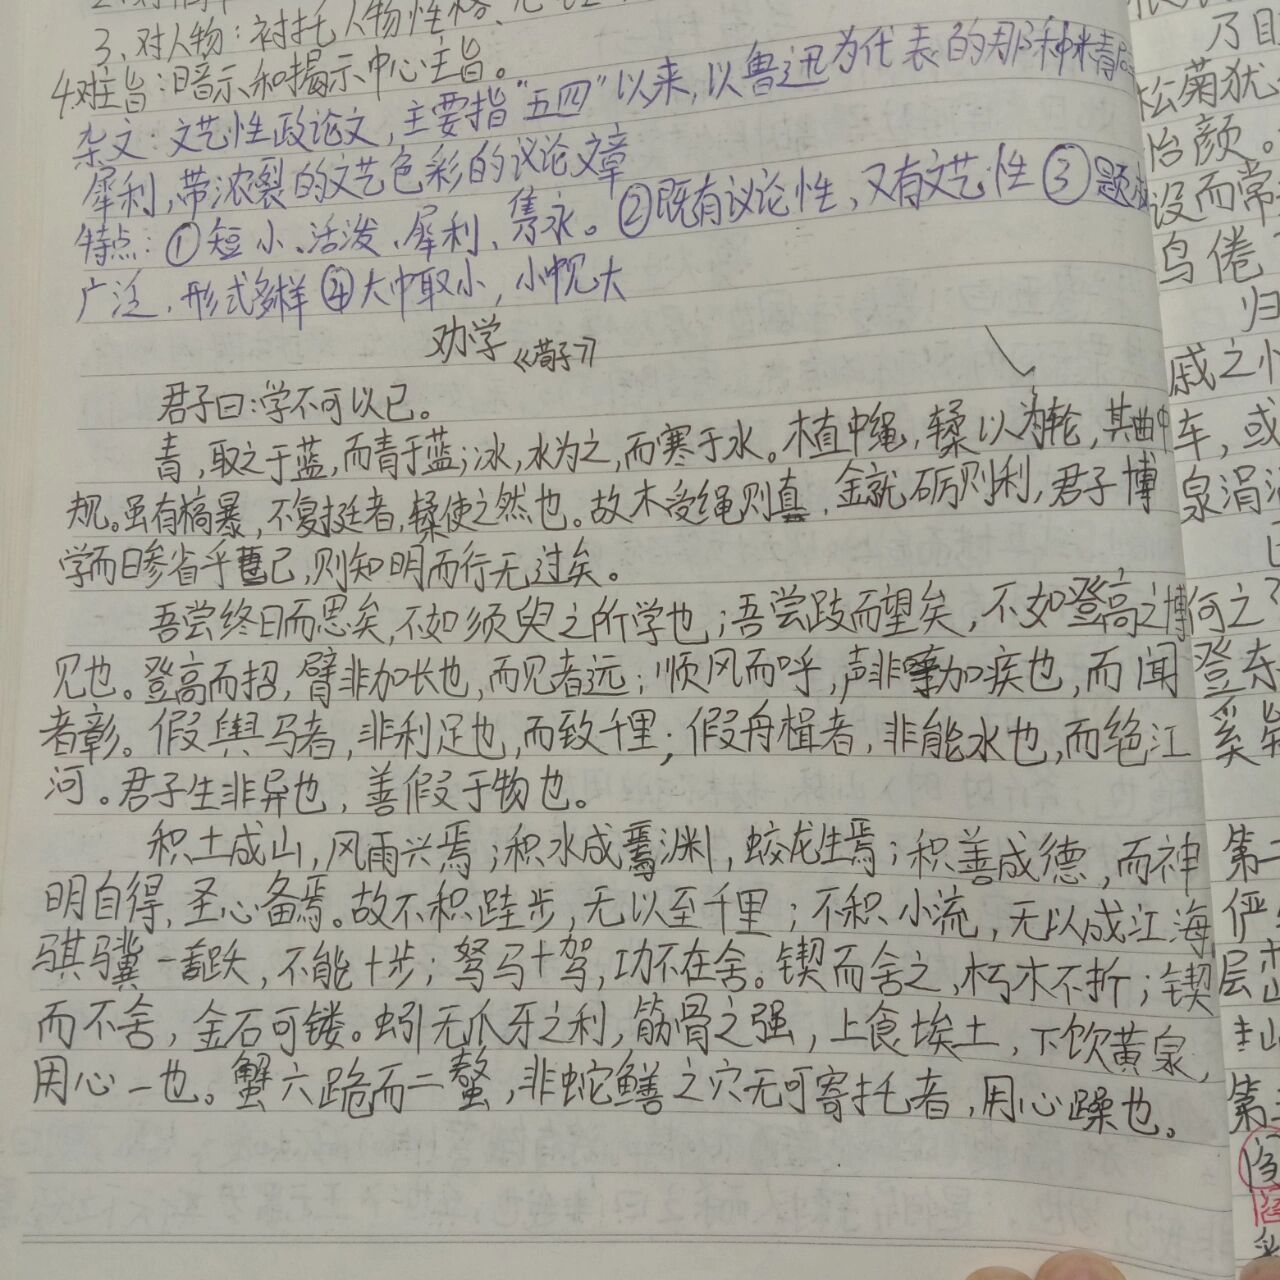 3、对人物：衬托人物性格、
4、对主旨：暗示和揭示中心主旨。
杂文：文艺性政论文，主要指“五四”以来，以鲁迅为代表的那种精
犀利，带浓裂的文艺色彩的议论文章
特点：①短小、活泼、犀利、隽永。②既有议论性，又有文艺性③题材
广泛，形式多样④大中取小，小中见大
劝学《荀子》
君子曰：学不可以已。
青，取之于蓝，而青于蓝；冰，水为之，而寒于水。木直中绳，輮以为轮，其曲中
规。虽有槁暴，不复挺者，輮使之然也。故木受绳则直，金就砺则利，君子博
学而日参省乎己，则知明而行无过矣。
吾尝终日而思矣，不如须臾之所学也；吾尝跂而望矣，不如登高之博
见也。登高而招，臂非加长也，而见者远；顺风而呼，声非加疾也，而闻
者彰。假舆马者，非利足也，而致千里；假舟楫者，非能水也，而绝江
河。君子生非异也，善假于物也。
积土成山，风雨兴焉；积水成渊，蛟龙生焉；积善成德，而神
明自得，圣心备焉。故不积跬步，无以至千里；不积小流，无以成江海
骐骥一跃，不能十步；驽马十驾，功不在舍。锲而舍之，朽木不折；锲
而不舍，金石可镂。蚓无爪牙之利，筋骨之强，上食埃土，下饮黄泉，
用心一也。蟹六跪而二螯，非蛇鳝之穴无可寄托者，用心躁也。
乃
松菊犹
怡颜。
设而常
鸟倦
归
戚之
车，或
泉涓
何之
登东
奚
第二
俨
层
第二